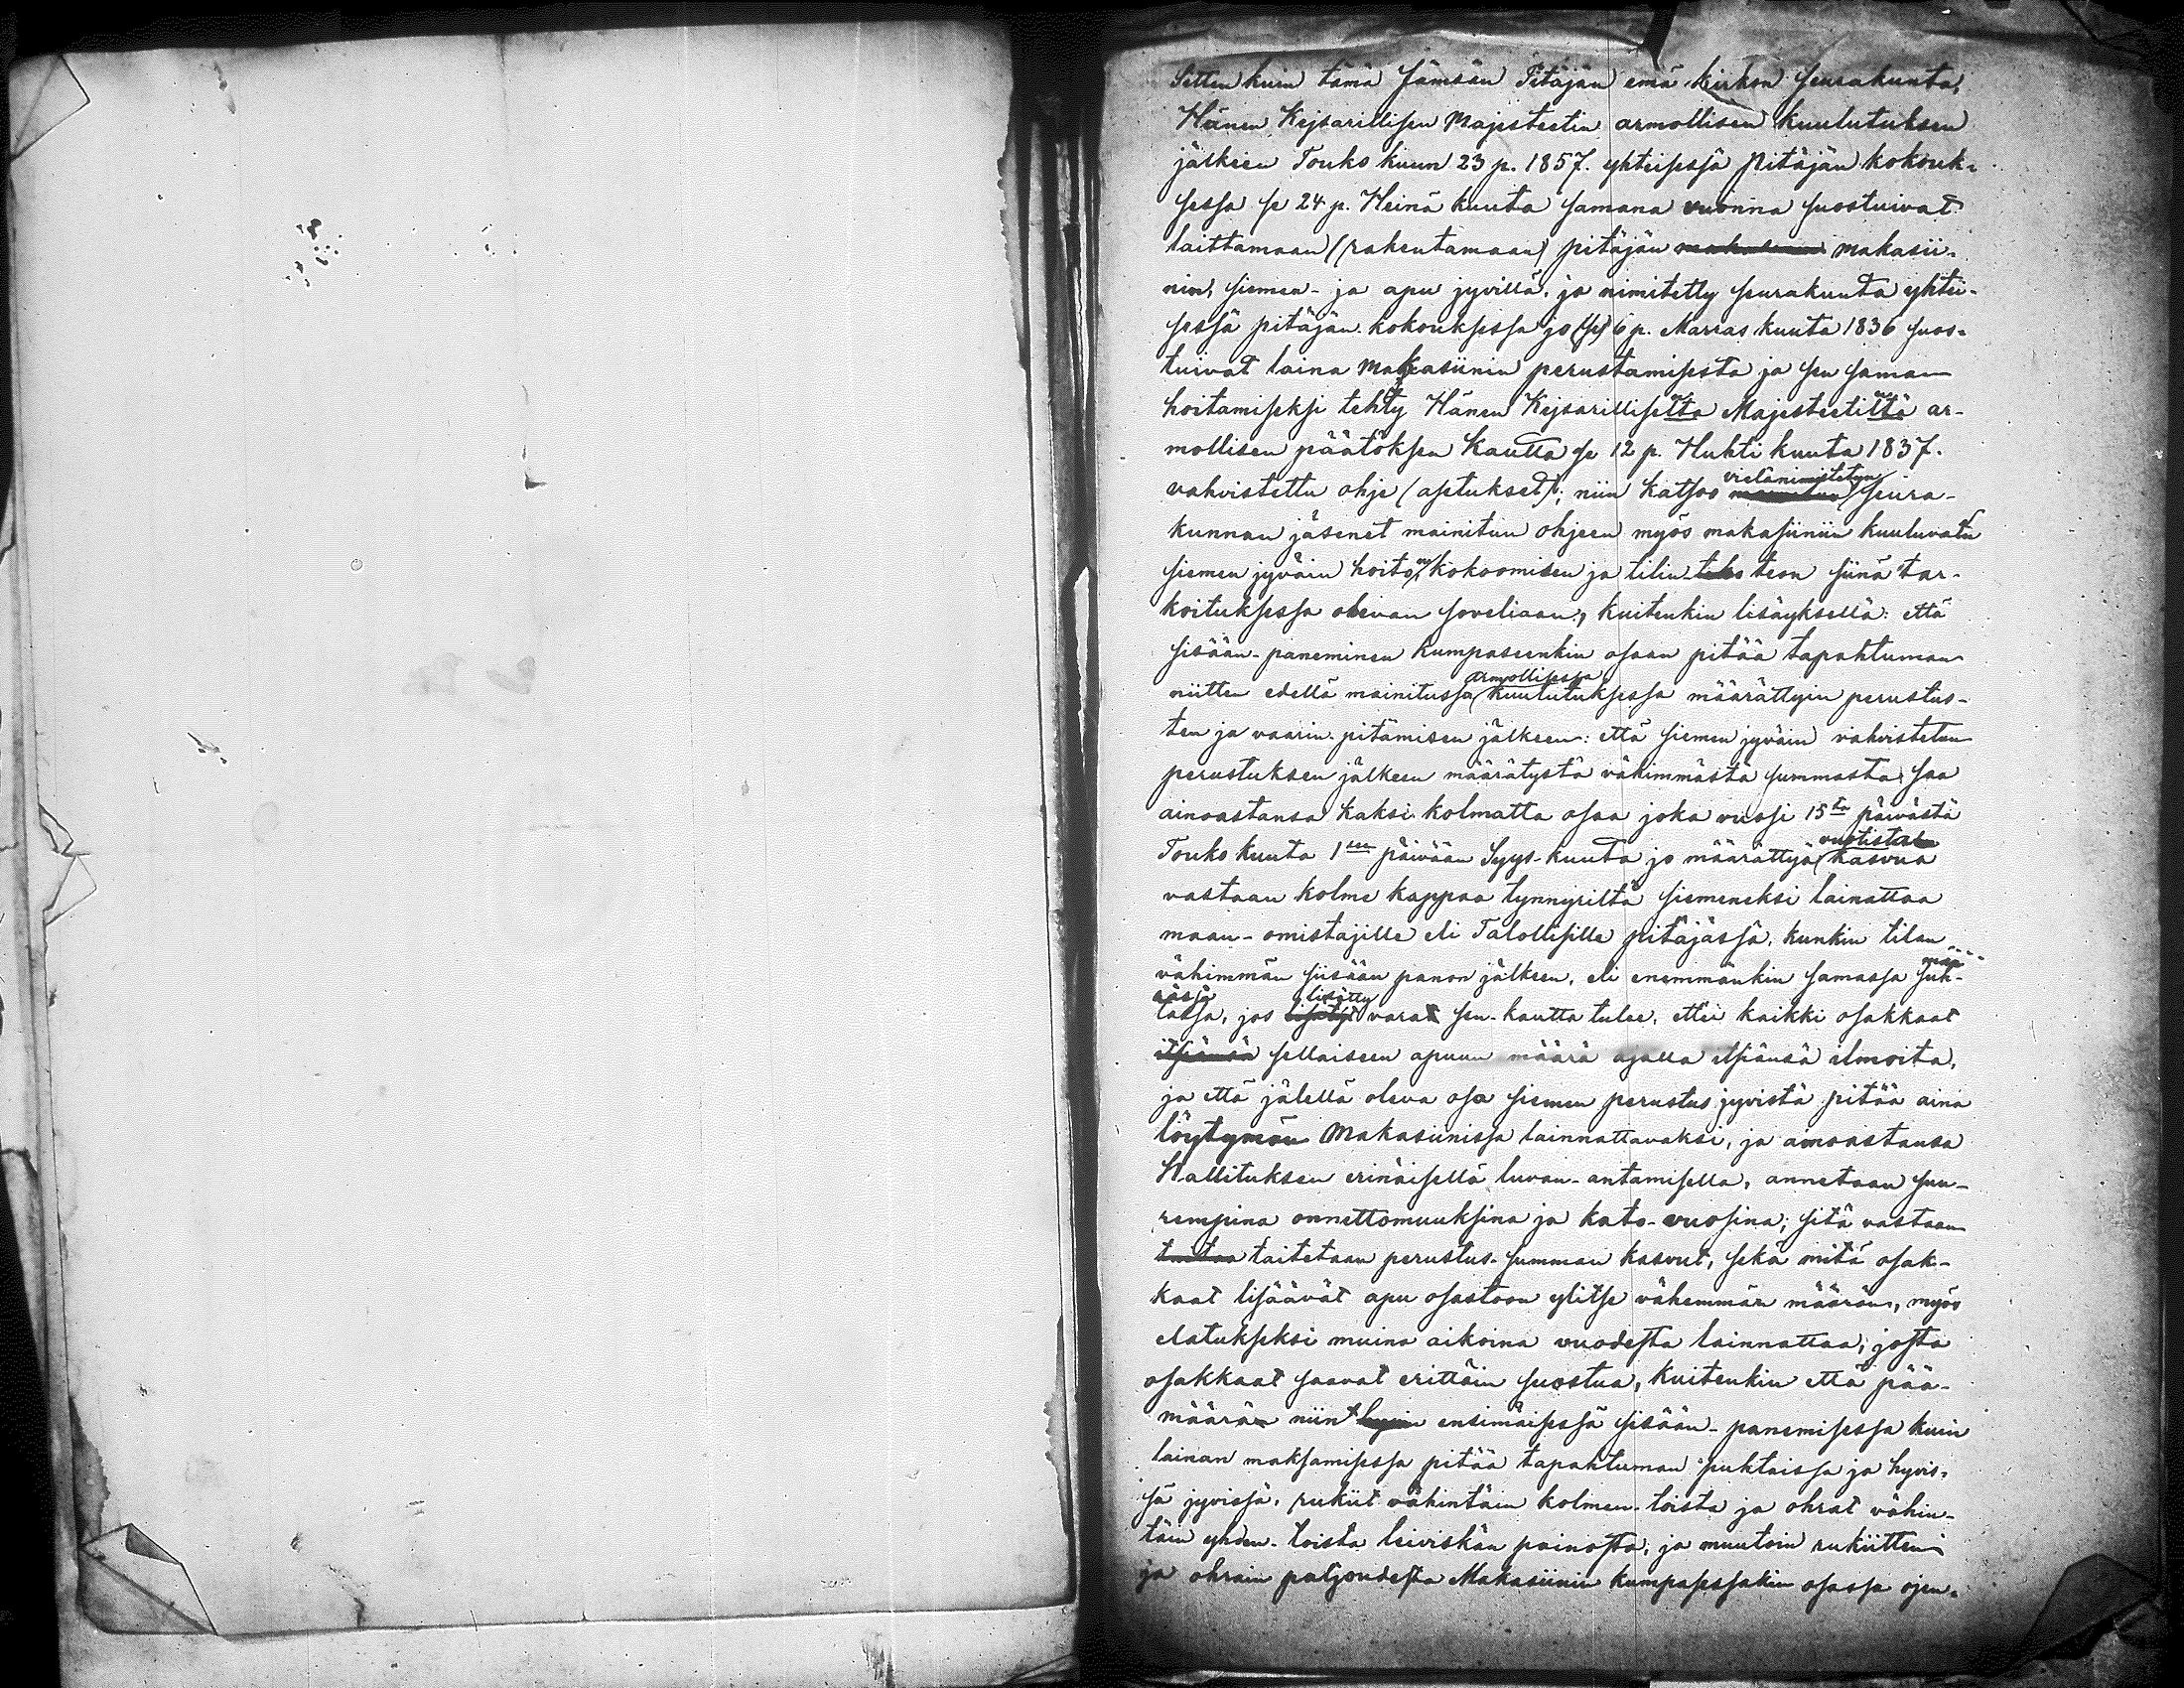 Sitten kuin tämä Jämsän Pitäjän emä kirkon seurakunta,
Hänen Kejsarillisen Majesteetin armollisen kuulutuksen
jälkeen Touko kuun 23 p. 1857. yhteisessä Pitäjän kokouk-
sessa se 24 p. Heinä kuuta samana vuonna suostuivat
laittamaan (rakentamaan) pitäjän makasii-
nin, siemen- ja apu jyvillä, ja nimitetty seurakunta yhtei-
sessä pitäjän kokouksessa jo (se) 6 p. Marras kuuta 1836 suos-
tuivat laina Makasiinin perustamisesta ja sen saman
hoitamiseksi tehty Hänen Kejsarilliselta Majesteetiltä ar-
mollisen päätöksen kautta se 12 p. Huhti kuuta 1837.
vahvistettu ohje (asetukset); niin katsoo vielänimitetyn seura-
kunnan jäsenet mainitun ohjeen myös makasiiniin kuuluvatn
siemen jyväin hoiton, kokoomisen ja tilin teko teon siinä tar-
koituksessa olevan soveliaan, kuitenkin lisäyksellä: että
sisään-paneminen kumpaseenkin osaan pitää tapahtuman
niitten edellä mainitussa armollisessa kuulutuksessa määrättyin perustus-
ten ja vaarin pitämisen jälkeen: että siemen jyväin vahvistetun
perustuksen jälkeen määrätystä vähimmästä summasta saa
ainoastansa kaksi kolmatta osaa joka vuosi 15ta päivästä
Touko kuuta 1sen päivään Syys-kuuta ja määrättyä vuotista kasvua
vastaan kolme kappaa tynnyriltä siemeneksi lainattaa
maan-omistajille eli Talollisille pitäjässä, kunkin tilan
vähimmän sisään panon jälkeen, eli enemmänkin samassa suh- mää-
tassa, rässä jos lisätyt lisätty varat sen kautta tulee, ettei kaikki osakkaat
itsiänsä sellaiseen apuun määrä ajalla itsiänsä ilmoita,
ja että jälellä oleva osa siemen perustus jyvistä pitää aina
löytymän Makasiinissa lainnattavaksi, ja ainoastansa
Hallituksen erinäisellä luvan-antamisella, annetaan suu-
rempina onnettomuuksina ja kato-vuosina; sitä vastaan
taitetaan perustus-summan kasvut, sekä mitä osak-
kaat lisäävät apu osastoon ylitse vähemmän määrän, myös
elatukseksi muina aikoina vuodesta lainnattaa; josta
osakkaat saavat erittäin suostua, kuitenkin että pää-
määrä niin hyvin ensimäisessä sisään-panemisessa kuin
lainan maksamisessa pitää tapahtuman puhtaissa ja hyvis-
sä jyvissä, rukiit vähintäin kolmen-toista ja ohrat vähin-
täin yhden-toista leiviskän painosta, ja muutoin rukiitten
ja ohrain paljoudesta Makasiinin kumpasessakin osassa ojen-